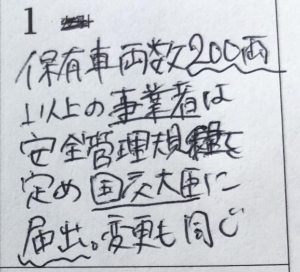 1
保有車両数200両
以上の事業者は
安全管理規程を
定め国交大臣に
届出。変更も同じ